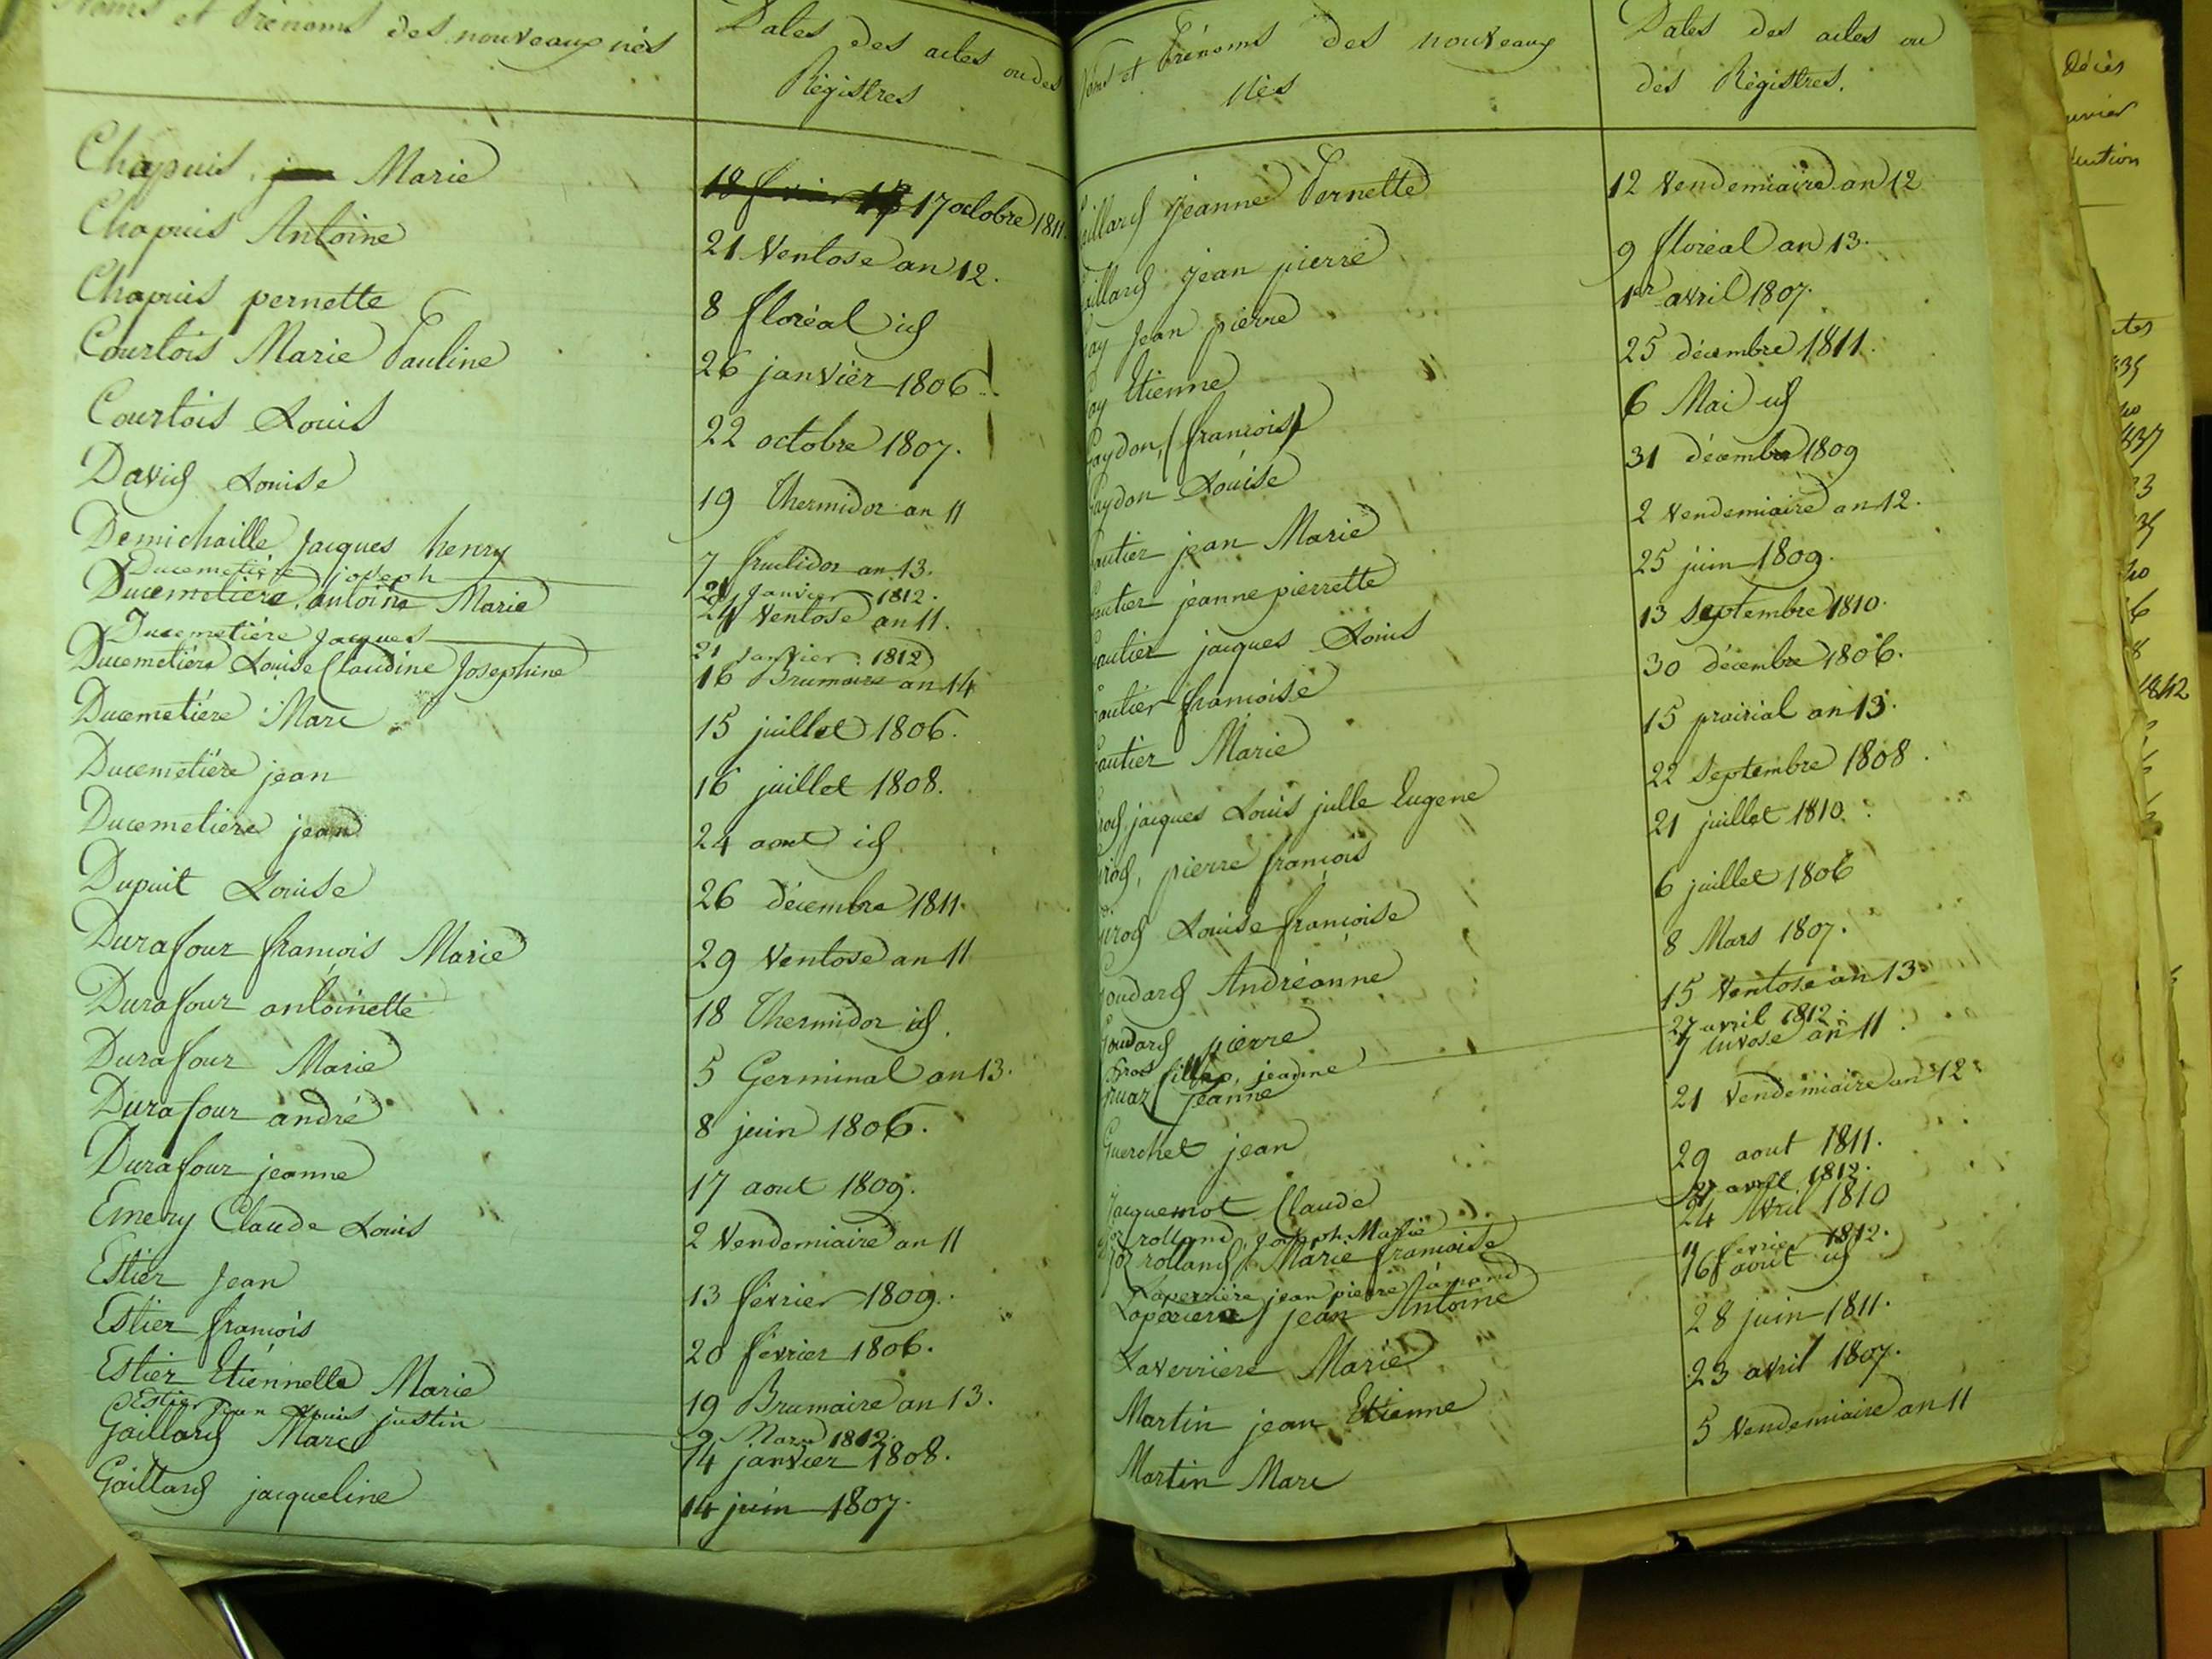 Noms et Prénoms des nouveaux nés
Dates des actes ou des
Régistres
Chapuis Marie 17 octobre 1811.
Chapuis Antoine 21 Ventose an 12.
Chapuis pernette 8 floréal id
Courtois Marie Pauline 26 janvier 1806.
Courtois Louis 22 octobre 1807.
David Louise 19 Thermidor an 11
Demichaille Jacques henry 7 fructidor an 13.
Ducemetière joseph 21 Janvier 1812.
Ducemetière antoine Marie 24 Ventose an 11.
Ducemetière Jacques 21 Janvier 1812
Ducemetière Louise Claudine Josephine 16 Brumaire an 14
Ducemetière Marc 15 juillet 1806.
Ducemetière jean 16 juillet 1808.
Ducemetiere jean 24 aout id
Dupuit Louise 26 décembre 1811.
Durafour francois Marie 29 Ventose an 11
Durafour antoinette 18 Thermidor id.
Durafour Marie 5 Germinal an 13.
Durafour andré 8 juin 1806.
Durafour jeanne 17 aout 1809.
Emery Claude Louis 2 Vendemiaire an 11
Estier Jean 13 février 1809.
Estier francois 20 février 1806.
Estier Etiennette Marie 19 Brumaire an 13.
Estier Jean Louis justin 9 Mars 1812.
Gaillard Marc 14 janvier 1808.
Gaillard jacqueline 14 juin 1807.
Noms et Prénoms des nouveaux
nés
Dates des actes ou
des Régistres.
Gaillard Jeanne Pernette 12 Vendemiaire an 12
Gaillard Jean pierre 9 floréal an 13.
Gay Jean pierre 1er avril 1807.
Gay Etienne 25 décembre 1811.
Gaydon, francois 6 Mai id
Gaydon Louise 31 décembre 1809
Gautier jean Marie 2 Vendemiaire an 12.
Gautier jeanne pierrette 25 juin 1809.
Gautier jacques Louis 13 Septembre 1810.
Gautier francoise 30 décembre 1806.
Gautier Marie 15 prairial an 13.
Girod, jacques Louis julle Eugene 22 Septembre 1808.
Girod, pierre francois 21 juillet 1810.
Girod Louise francoise 6 juillet 1806
Goudard Andréanne 8 Mars 1807.
Goudard pierre 15 Ventose an 13
Gros fillex, jeanne 27 avril 1812.
Gruaz jeanne 7 nivose an 11.
Guerchet jean 21 Vendemiaire an 12.
Jacquemot Claude 29 aout 1811.
rolland, Joseph Marie avril 1812.
rolland, Marie francoise 24 Avril 1810
Laperrière jean pierre amand 11 fevrier 1812.
Laperiere jean Antoine 16 aout id
Laverriere Marie 28 juin 1811.
Martin jean Etienne 23 avril 1807.
Martin Marc 5 Vendemiaire an 11
Décès
1842